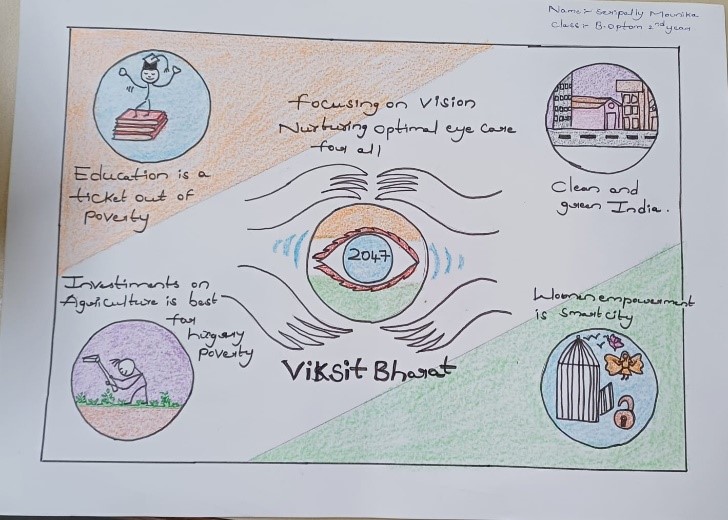 Name:- Seripally Mounika
Class:- B.optom 2nd year
Focusing on Vision
Nurturing optimal eye care
four all
Education is a
ticket out of
Poverty
Clean and
green India.
2047
Investiments on
Agriculture is best
for
hugary
Poverty
Women empowerment
is smart city
Viksit Bharat